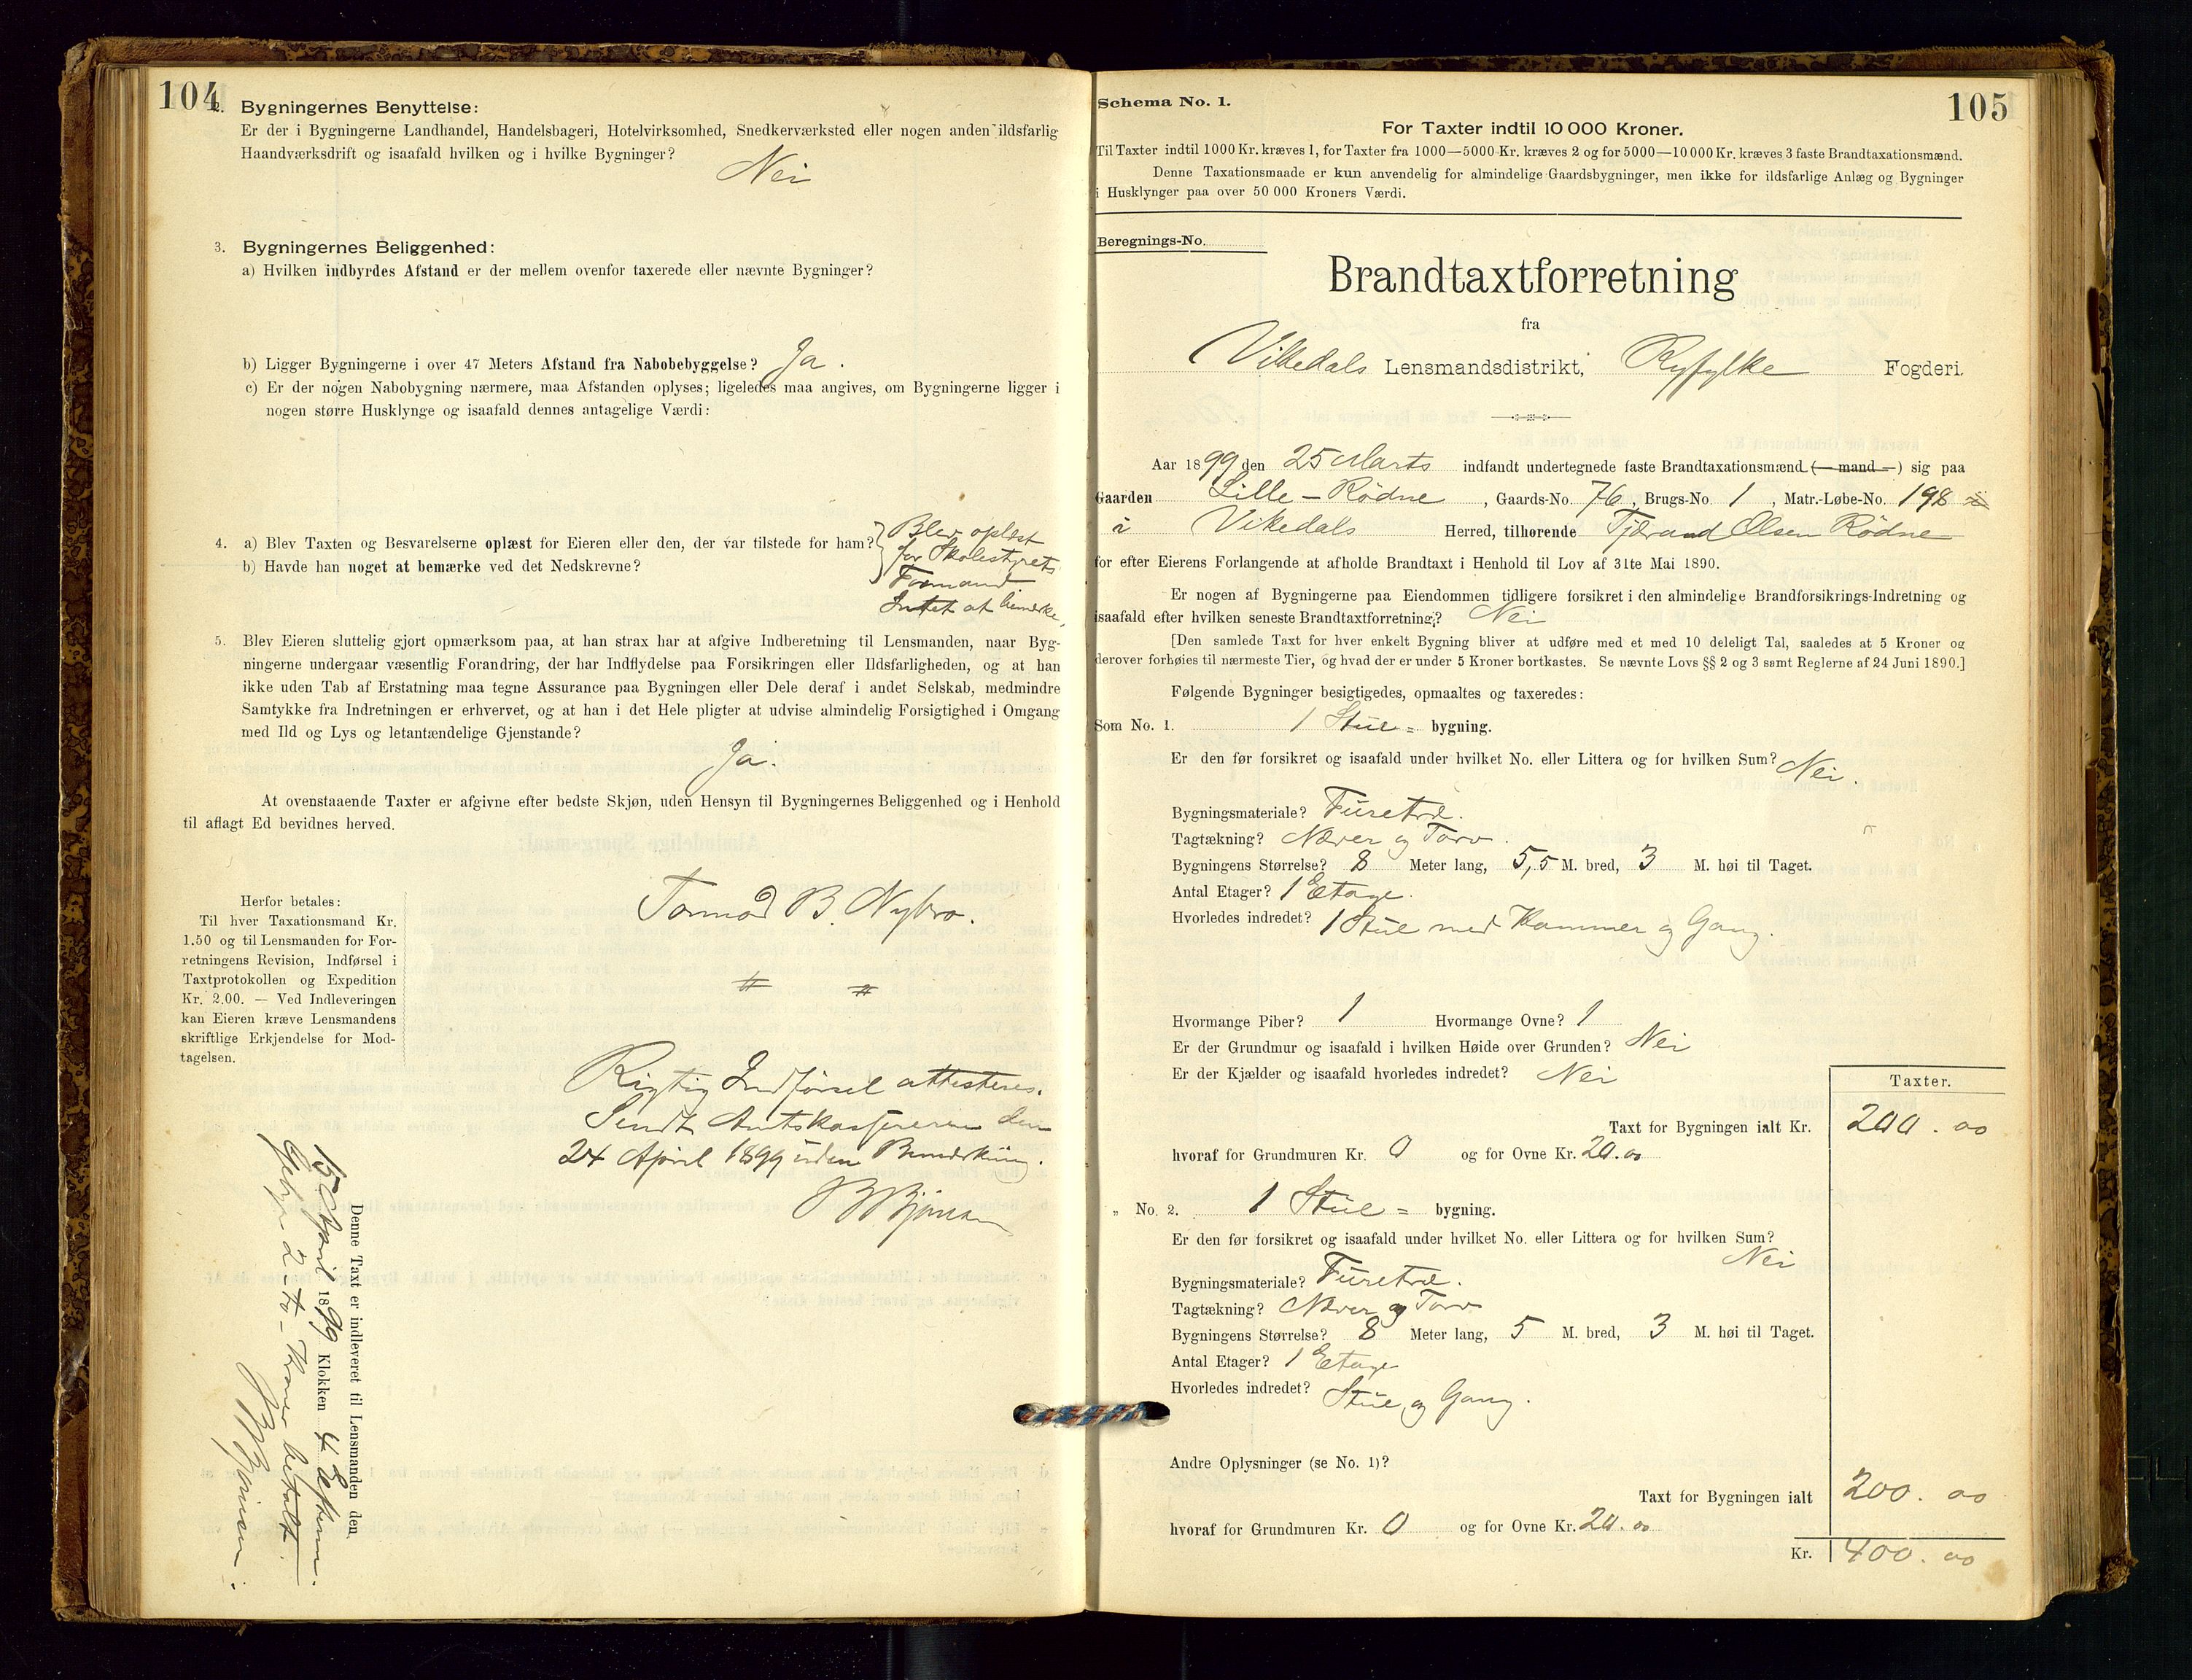 104
2. Bygningernes Benyttelse:
Er der i Bygningerne Landhandel, Handelsbageri, Hotelvirksomhed, Snedkerværksted eller nogen anden ildsfarlig
Haandværksdrift og isaafald hvilken og i hvilke Bygninger?
Nei
3. Bygningernes Beliggenhed:
a) Hvilken indbyrdes Afstand er der mellem ovenfor taxerede eller nævnte Bygninger?
b) Ligger Bygningerne i over 47 Meters Afstand fra Nabobebyggelse? Ja.
c) Er der nogen Nabobygning nærmere, maa Afstanden oplyses; ligeledes maa angives, om Bygningerne ligger i
nogen større Husklynge og isaafald dennes antagelige Værdi:
4. a) Blev Taxten og Besvarelserne oplæst for Eieren eller den, der var tilstede for ham?
b) Havde han noget at bemærke ved det Nedskrevne?
Blev oplæst
for Skolestyrets
Formand
Intet at bemerke.
5. Blev Eieren sluttelig gjort opmærksom paa, at han strax har at afgive Indberetning til Lensmanden, naar Byg-
ningerne undergaar væsentlig Forandring, der har Indflydelse paa Forsikringen eller Ildsfarligheden, og at han
ikke uden Tab af Erstatning maa tegne Assurance paa Bygningen eller Dele deraf i andet Selskab, medmindre
Samtykke fra Indretningen er erhvervet, og at han i det Hele pligter at udvise almindelig Forsigtighed i Omgang
med Ild og Lys og letantændelige Gjenstande?
Ja.
At ovenstaaende Taxter er afgivne efter bedste Skjøn, uden Hensyn til Bygningernes Beliggenhed og i Henhold
til aflagt Ed bevidnes herved.
Herfor betales:
Til hver Taxationsmand Kr.
1.50 og til Lensmanden for For-
retningens Revision, Indførsel i
Taxtprotokollen og Expedition
Kr. 2.00. — Ved Indleveringen
kan Eieren kræve Lensmandens
skriftlige Erkjendelse for Mod-
tagelsen.
Tormod B. Nybro.
Rigtig Indførsel attesteres.
Sendt Amtskassereren den
24 April 1899 uden Bemerkning.
B Bjørnsen
Denne Taxt er indleveret til Lensmanden den
15 April 1899 Klokken 4 Efterm.
Gebyr 2 – to – Kroner betalt.
B Bjørnsen.
105
Schema No. 1.
For Taxter indtil 10 000 Kroner.
Til Taxter indtil 1000 Kr. kræves 1, for Taxter fra 1000—5000 Kr. kræves 2 og for 5000—10 000 Kr. kræves 3 faste Brandtaxationsmænd.
Denne Taxationsmaade er kun anvendelig for almindelige Gaardsbygninger, men ikke for ildsfarlige Anlæg og Bygninger
i Husklynger paa over 50 000 Kroners Værdi.
Beregnings-No.
Brandtaxtforretning
fra
Vikedals Lensmandsdistrikt, Ryfylke Fogderi.
Aar 1899 den 25 Marts indfandt undertegnede faste Brandtaxationsmænd (— mand —) sig paa
Gaarden Lille-Rödne, Gaards-No. 76, Brugs-No. 1, Matr.-Løbe-No. 198
i Vikedals Herred, tilhørende Tjærand Olsen Rödne
for efter Eierens Forlangende at afholde Brandtaxt i Henhold til Lov af 31te Mai 1890.
Er nogen af Bygningerne paa Eiendommen tidligere forsikret i den almindelige Brandforsikrings-Indretning og
isaafald efter hvilken seneste Brandtaxtforretning? Nei
[Den samlede Taxt for hver enkelt Bygning bliver at udføre med et med 10 deleligt Tal, saaledes at 5 Kroner og
derover forhøies til nærmeste Tier, og hvad der er under 5 Kroner bortkastes. Se nævnte Lovs §§ 2 og 3 samt Reglerne af 24 Juni 1890.]
Følgende Bygninger besigtigedes, opmaaltes og taxeredes:
Som No. 1. 1 Stue= bygning.
Er den før forsikret og isaafald under hvilket No. eller Littera og for hvilken Sum? Nei.
Bygningsmateriale? Furetræ.
Tagtækning? Næver og Torv.
Bygningens Størrelse? 8 Meter lang, 5,5 M. bred, 3 M. høi til Taget.
Antal Etager? 1 Etage.
Hvorledes indredet? 1 Stue med Kammer og Gang.
Hvormange Piber? 1 Hvormange Ovne? 1
Er der Grundmur og isaafald i hvilken Høide over Grunden? Nei
Er der Kjælder og isaafald hvorledes indredet? Nei
Taxter.
Taxt for Bygningen ialt Kr. 200.00
hvoraf for Grundmuren Kr. 0 og for Ovne Kr. 20.00
„ No. 2. 1 Stue= bygning.
Er den før forsikret og isaafald under hvilket No. eller Littera og for hvilken Sum?
Nei
Bygningsmateriale? Furetræ.
Tagtækning? Næver og Torv
Bygningens Størrelse? 8 Meter lang, 5 M. bred, 3 M. høi til Taget.
Antal Etager? 1 Etage
Hvorledes indredet? Stue og Gang.
Andre Oplysninger (se No. 1)?
Taxt for Bygningen ialt 200.00
hvoraf for Grundmuren Kr. 0 og for Ovne Kr. 20.00
Kr. 400.00